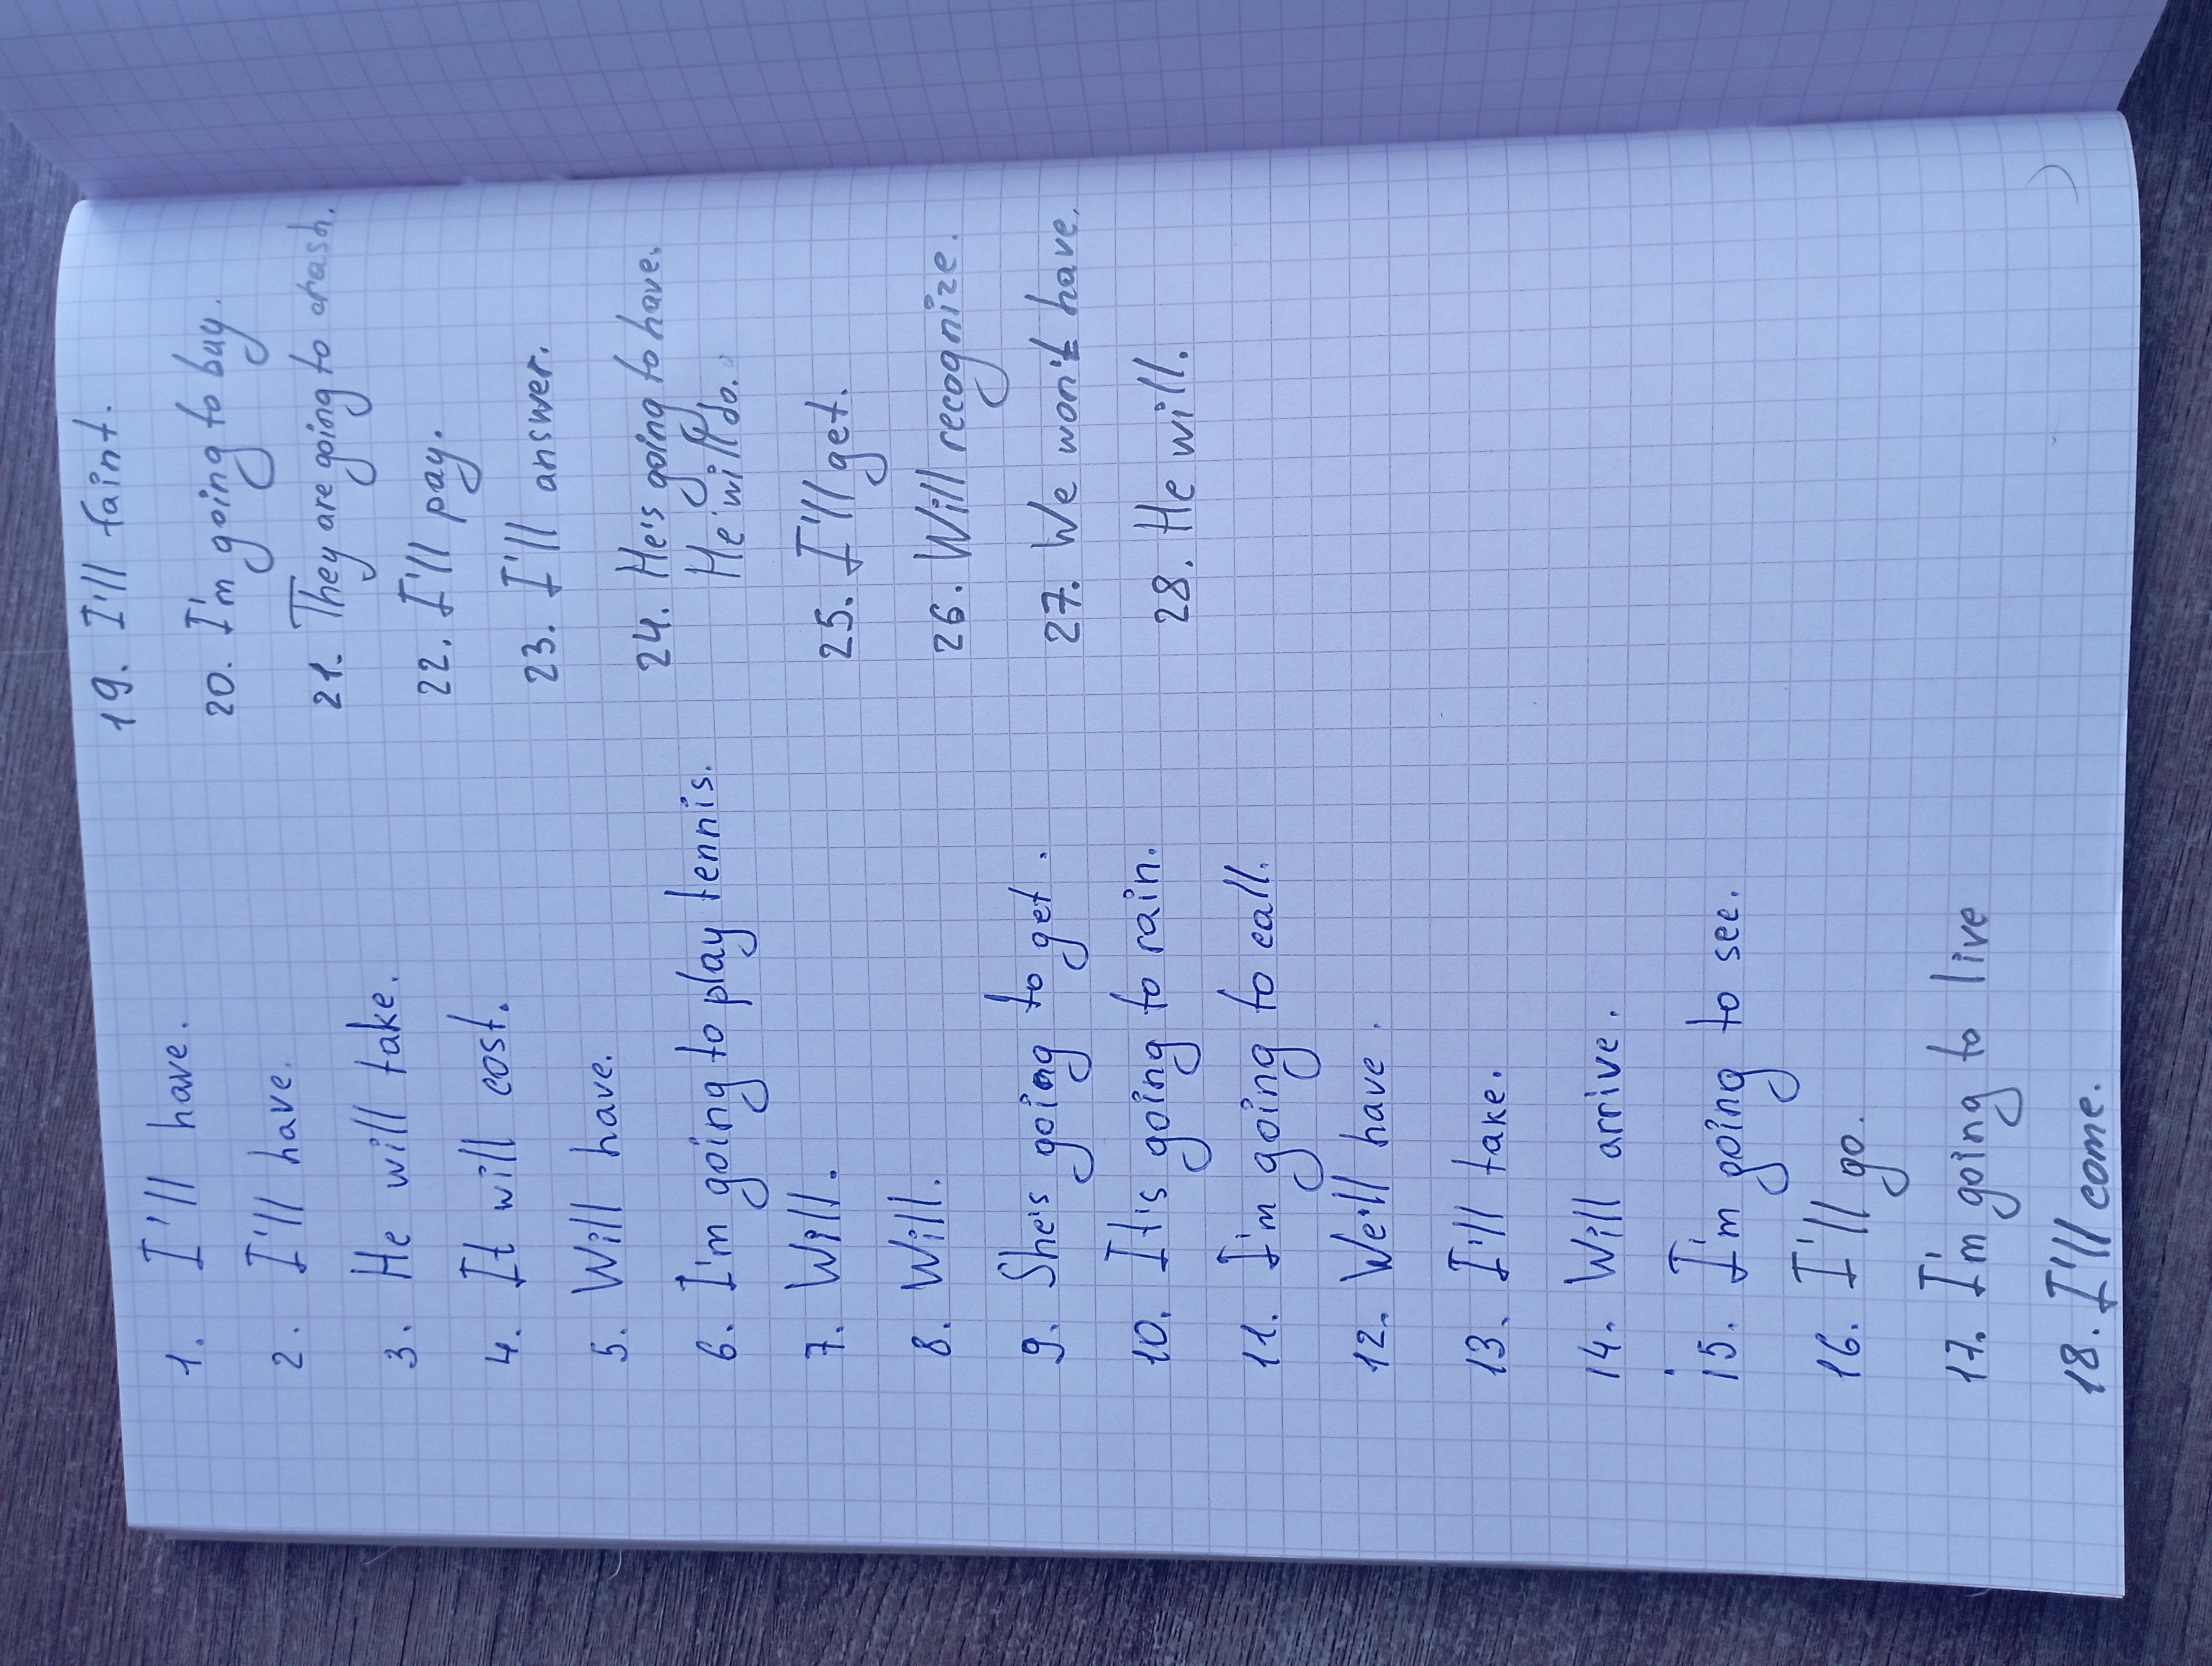 1. I'll have.
2. I'll have.
3. He will take.
4. It will cost.
5. Will have.
6. I'm going to play tennis.
7. Will.
8. Will.
9. She's going to get.
10. It's going to rain.
11. I'm going to call.
12. We'll have.
13. I'll take.
14. Will arrive.
15. I'm going to see.
16. I'll go.
17. I'm going to live
18. I'll come.
19. I'll faint.
20. I'm going to buy.
21. They are going to crash.
22. I'll pay.
23. I'll answer.
24. He's going to have.
He'will do.
25. I'll get.
26. Will recognize.
27. We won't have.
28. He will.